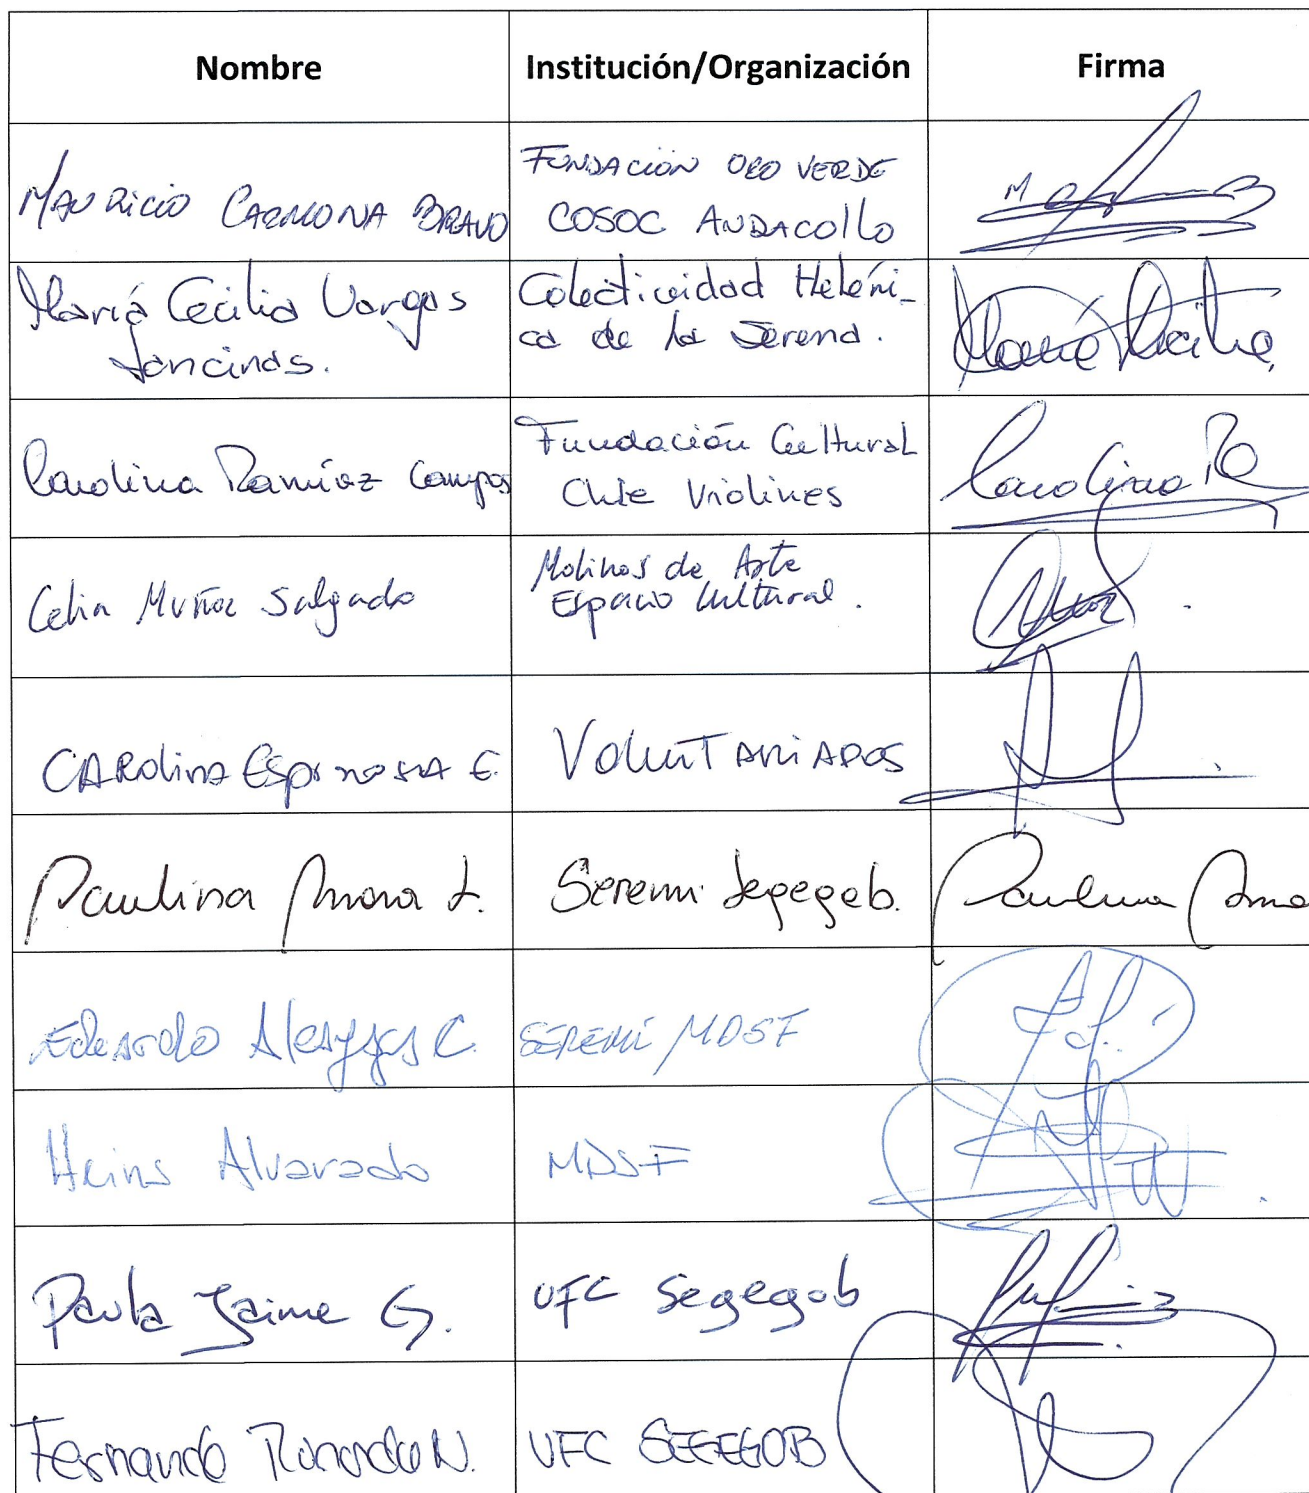 Nombre Institución/Organización Firma
MAURICIO CARMONA BRAVO
FUNDACIÓN ORO VERDE
COSOC ANDACOLLO
María Cecilia Vargas
Jancinas.
Colectividad Heléni-
ca de la Serena.
María Cecilia
Carolina Ramírez Campos
Fundación Cultural
Chile Violines
Carolina R
Celia Muñoz Salgado
Molinos de Arte
Espacio Cultural.
CAROLINA ESPINOSA E.
VOLUNTARIADOS
Paulina Mora L.
Seremi Segegob.
Paulina Mora
Eduardo C.
SEREMI MDSF
Heins Alvarado
MDSF
Paula Jaime G.
UFC Segegob
Fernando N.
UFC SEGEGOB